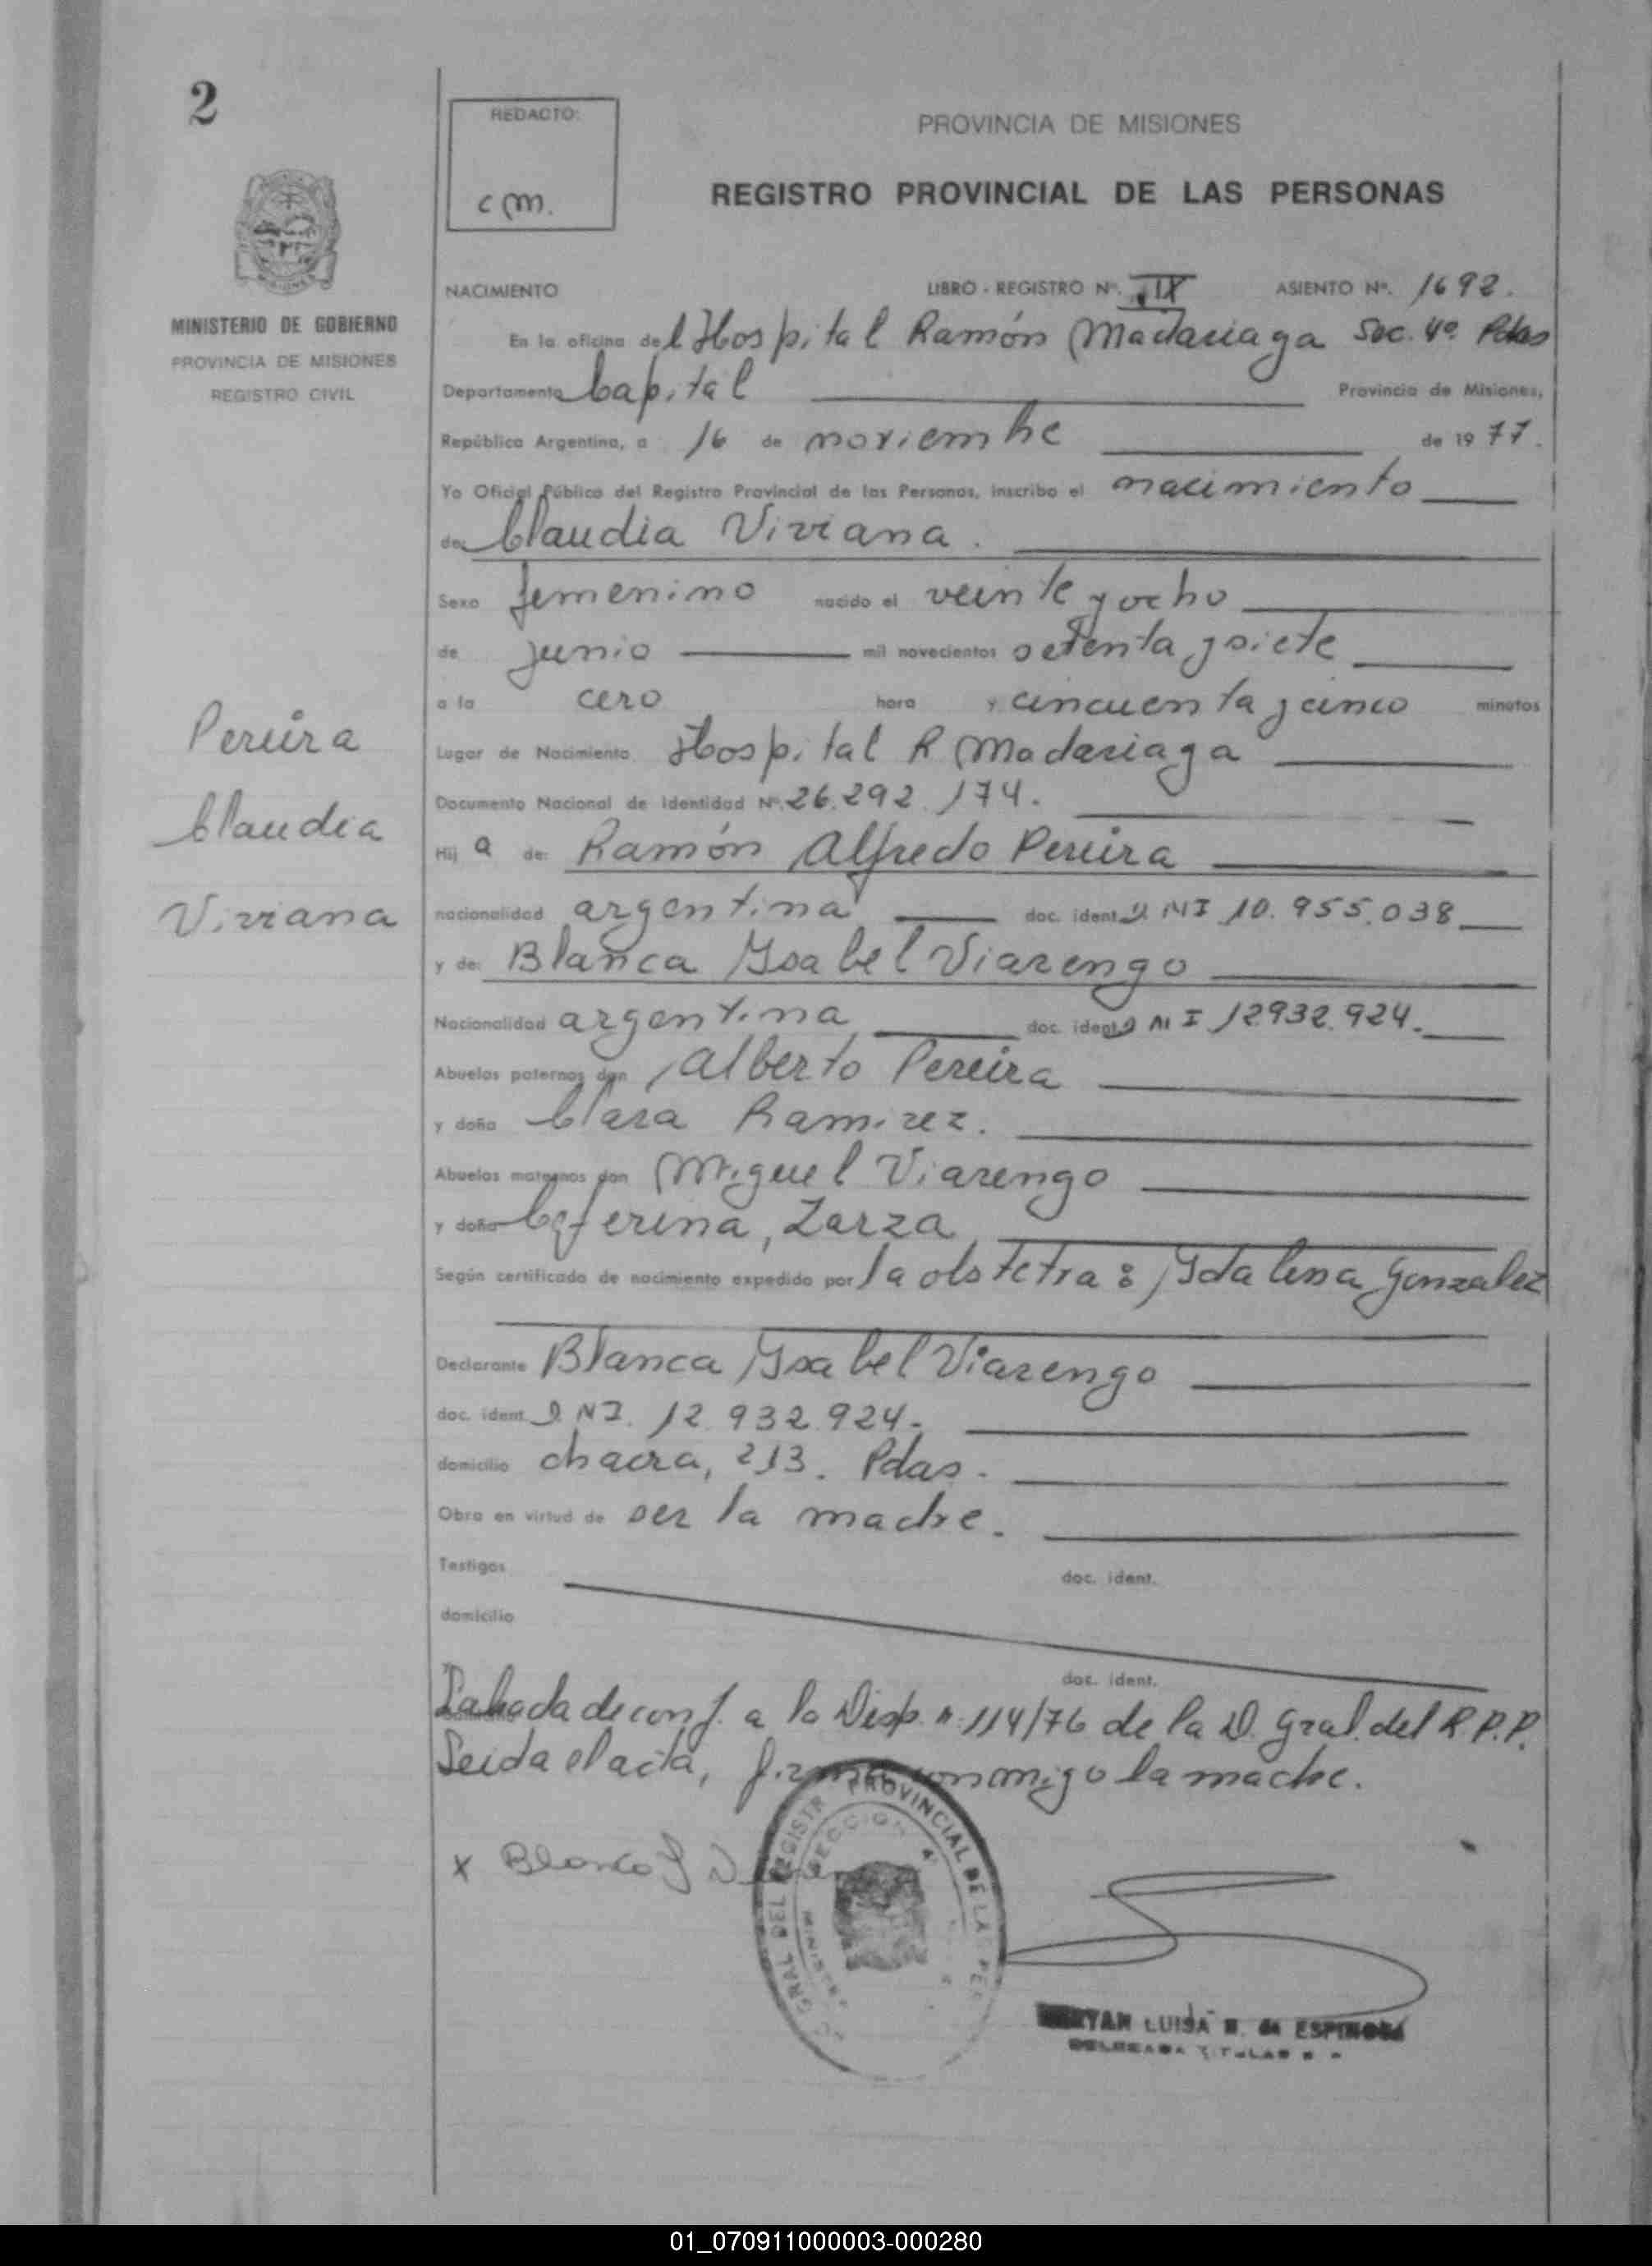 2
REDACTO:
cm.
PROVINCIA DE MISIONES
REGISTRO PROVINCIAL DE LAS PERSONAS
MINISTERIO DE GOBIERNO
PROVINCIA DE MISIONES
REGISTRO CIVIL
NACIMIENTO LIBRO - REGISTRO Nº. IX ASIENTO Nº. 1692.
En la oficina del Hospital Ramón Madariaga Sec. 4º Pdas
Departamento Capital Provincia de Misiones,
República Argentina, a 16 de noviembre de 1977.
Yo Oficial Público del Registro Provincial de las Personas, inscribo el nacimiento
de: Claudia Viviana.
Sexo femenino nacido el veinte y ocho
de junio mil novecientos setenta y siete
a la cero hora y cincuenta y cinco minutos
Lugar de Nacimiento Hospital R Madariaga
Documento Nacional de Identidad Nº. 26.292.174.
Hij a de: Ramón Alfredo Pereira
nacionalidad argentina doc. ident. DNI 10.955.038
y de: Blanca Ysabel Viarengo
Nacionalidad argentina doc. ident. DNI 12932.924.
Abuelos paternos don Alberto Pereira
y doña Clara Ramirez.
Abuelos maternos don Miguel Viarengo
y doña Ceferina, Zarza
Según certificado de nacimiento expedido por la obstetra: Ydalena Gonzalez
Declarante Blanca Ysabel Viarengo
doc. ident. DNI. 12.932.924.
domicilio chacra, 213. Pdas.
Obra en virtud de ser la madre.
Testigos doc. ident.
domicilio
doc. ident.
Labrada de conf. a la Disp. n. 114/76 de la D. Gral. del R.P.P.
Leida el acta, firma conmigo la madre.
x Blanca Y
Pereira
Claudia
Viviana
GRAL DEL REGISTR PROVINCIAL DE LA PE
SECCION 4
LUISA ESPINOSA
01_070911000003-000280